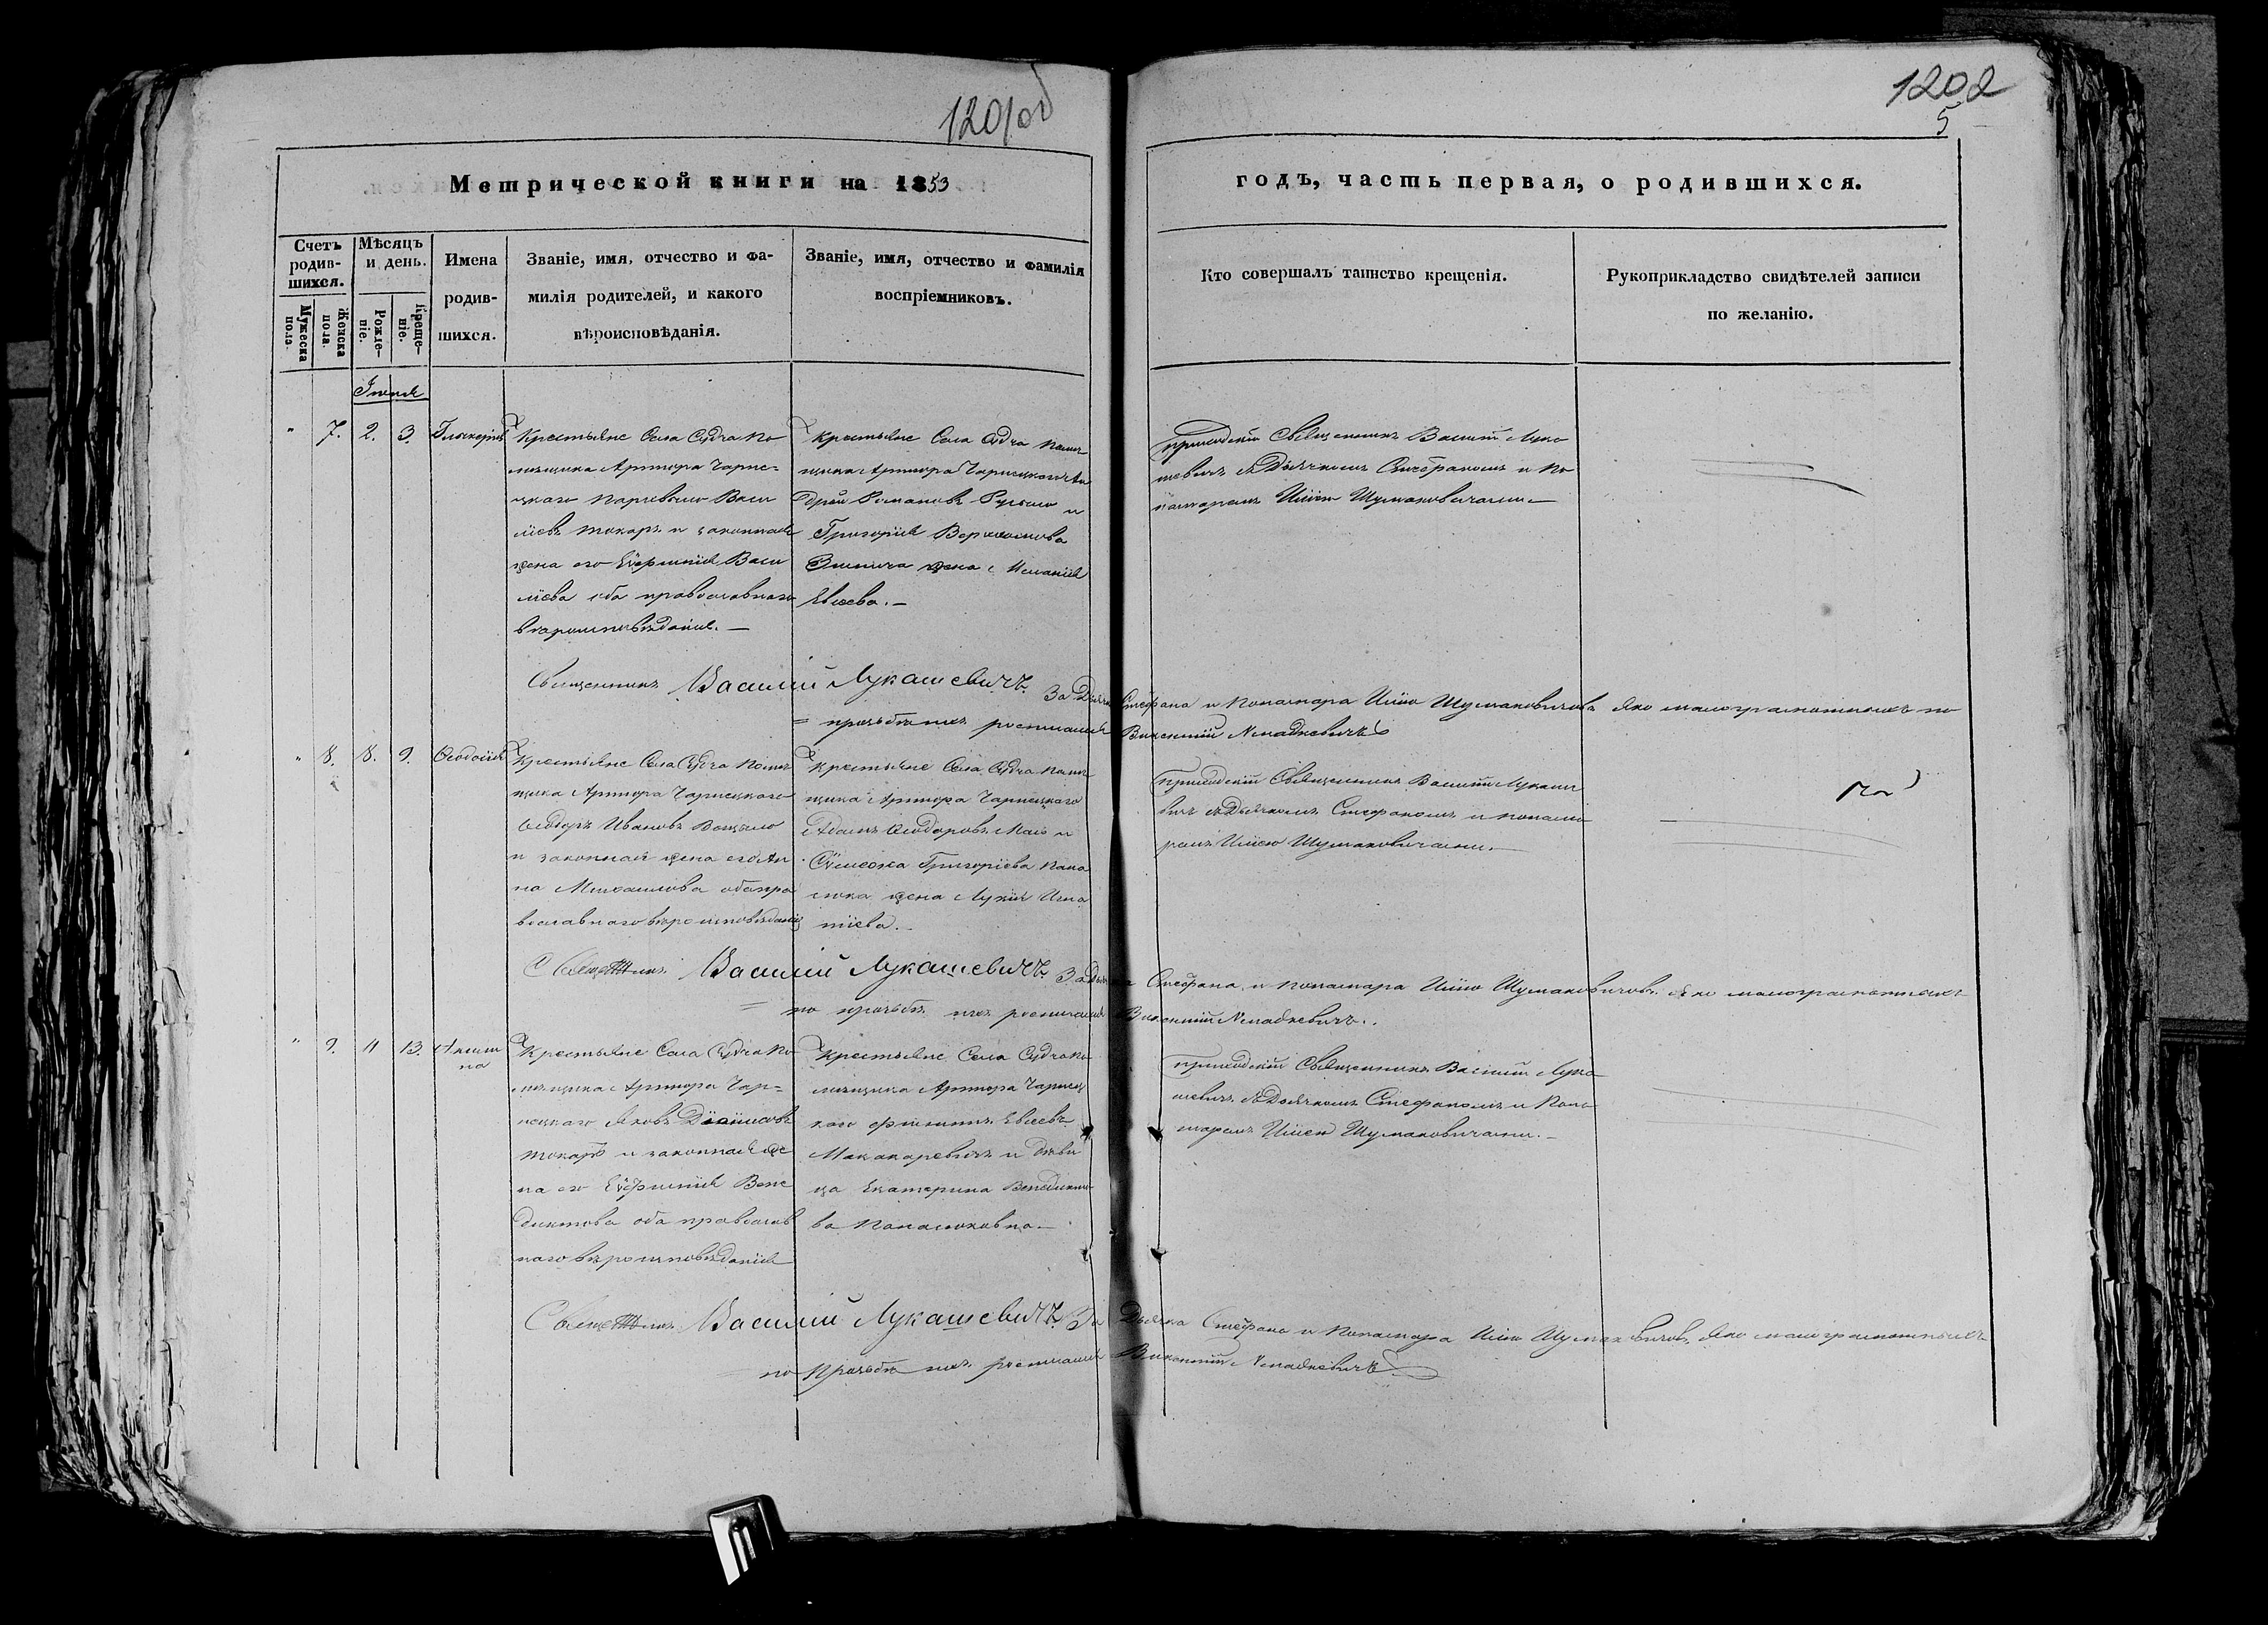 1201об
1202
5
Метрической книги на 1853
годъ, часть первая, о родившихся.
Счетъ родив-шихся.
Мужеска пола.
Женска пола.
Мѣсяцъ и день.
Рожде-ніе.
Креще-ніе.
Имена
родив-
шихся.
Званіе, имя, отчество и фа-
милія родителей, и какого
вѣроисповѣданія.
Званіе, имя, отчество и фамилія
воспріемниковъ.
Кто совершалъ таинство крещенія.
Рукоприкладство свидѣтелей записи
по желанію.
" 7. 2. 3. Гликерія
Крестьяне Села Судча По
мещика Артюра Чарне=
цкаго Васи
ліевъ Токаръ и законная
жена его Евфимія Васи
ліева оба православнаго
вѣроисповѣданія.—
Крестьяне Села Судча Поме
щика Артюра Чарнецкаго Ан
дрей Романовъ и
Григорія
жена
Евсеева.—
Приходскій Священникъ Василій Лука
шевичъ съ Дьячкомъ Стефаномъ и По
намаремъ Иліею Шумаковичами.—
Священникъ Василій Лукашевичъ. За Дьячка Стефана и Понамара Илію Шумаковичовъ яко малограмотныхъ по
= прозьбѣ ихъ росписался Викентій
" 8. 8. 9. Феодосія
Крестьяне Села Судча Поме
щика Артюра Чарнецкаго
Феодоръ Ивановъ
и законная жена его Ан
на Михаилова оба пра
вославнаго вѣроисповѣданія
Крестьяне Села Судча Поме
щика Артюра Чарнецкаго
Адамъ Феодоровъ и
Григоріева Пана
сюка жена Лукія Игна
тіева.—
Приходскій Священникъ Василій Лукаше
вичъ съ Дьячкомъ Стефаномъ и Понама
ремъ Иліею Шумаковичами.—
Священникъ Василій Лукашевичъ. За Дьячка Стефана и Понамара Илію Шумаковичовъ яко малограмотныхъ
= по прозьбѣ ихъ росписался Викентій
" 9. 11 13. Акили
на
Крестьяне Села Судча По
мещика Артюра Чар=
нецкаго Яковъ Діонисовъ
Токаръ и законная же
на его Евфимія Вене
диктова оба православ
наго вѣроисповѣданія
Крестьяне Села Судча По
мещика Артюра Чарнец
каго Филиппъ Евсеевъ
Макаревичъ и дѣви
ца Екатерина Венедикто
ва Панасюковна.—
Приходскій Священникъ Василій Лука
шевичъ съ Дьячкомъ Стефаномъ и Пона
маремъ Иліею Шумаковичами.—
Священникъ Василій Лукашевичъ. За Дьячка Стефана и Понамара Илію Шумаковичовъ яко малограмотныхъ
по прозьбѣ ихъ росписался Викентій